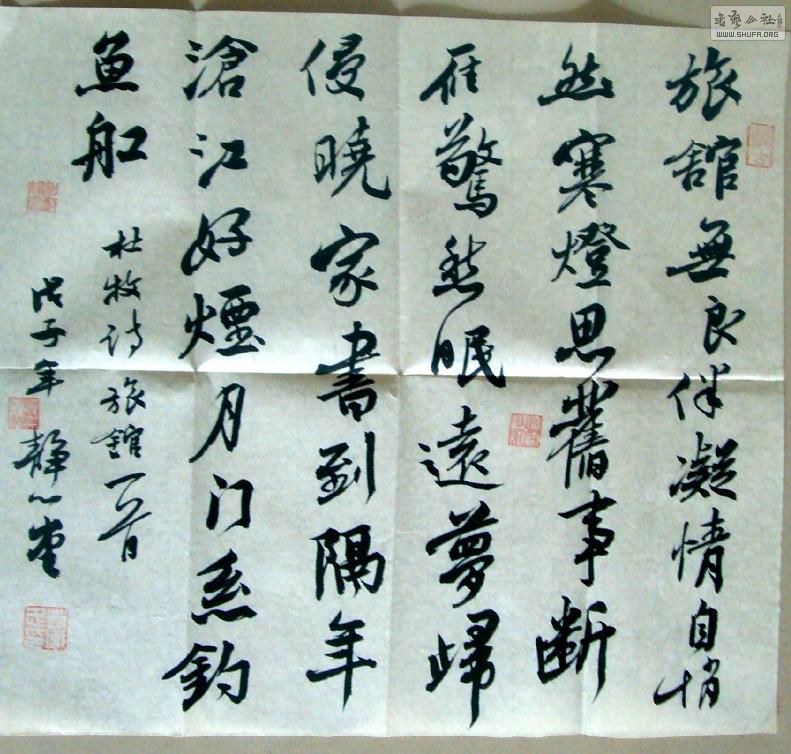 旅舘無良伴凝情自悄
然寒燈思舊事断
雁驚愁眠遠夢歸
侵曉家書到隔年
滄江好煙月门系釣
魚船
杜牧诗旅舘一首
戊子年静心堂
WWW.SHUFA.ORG